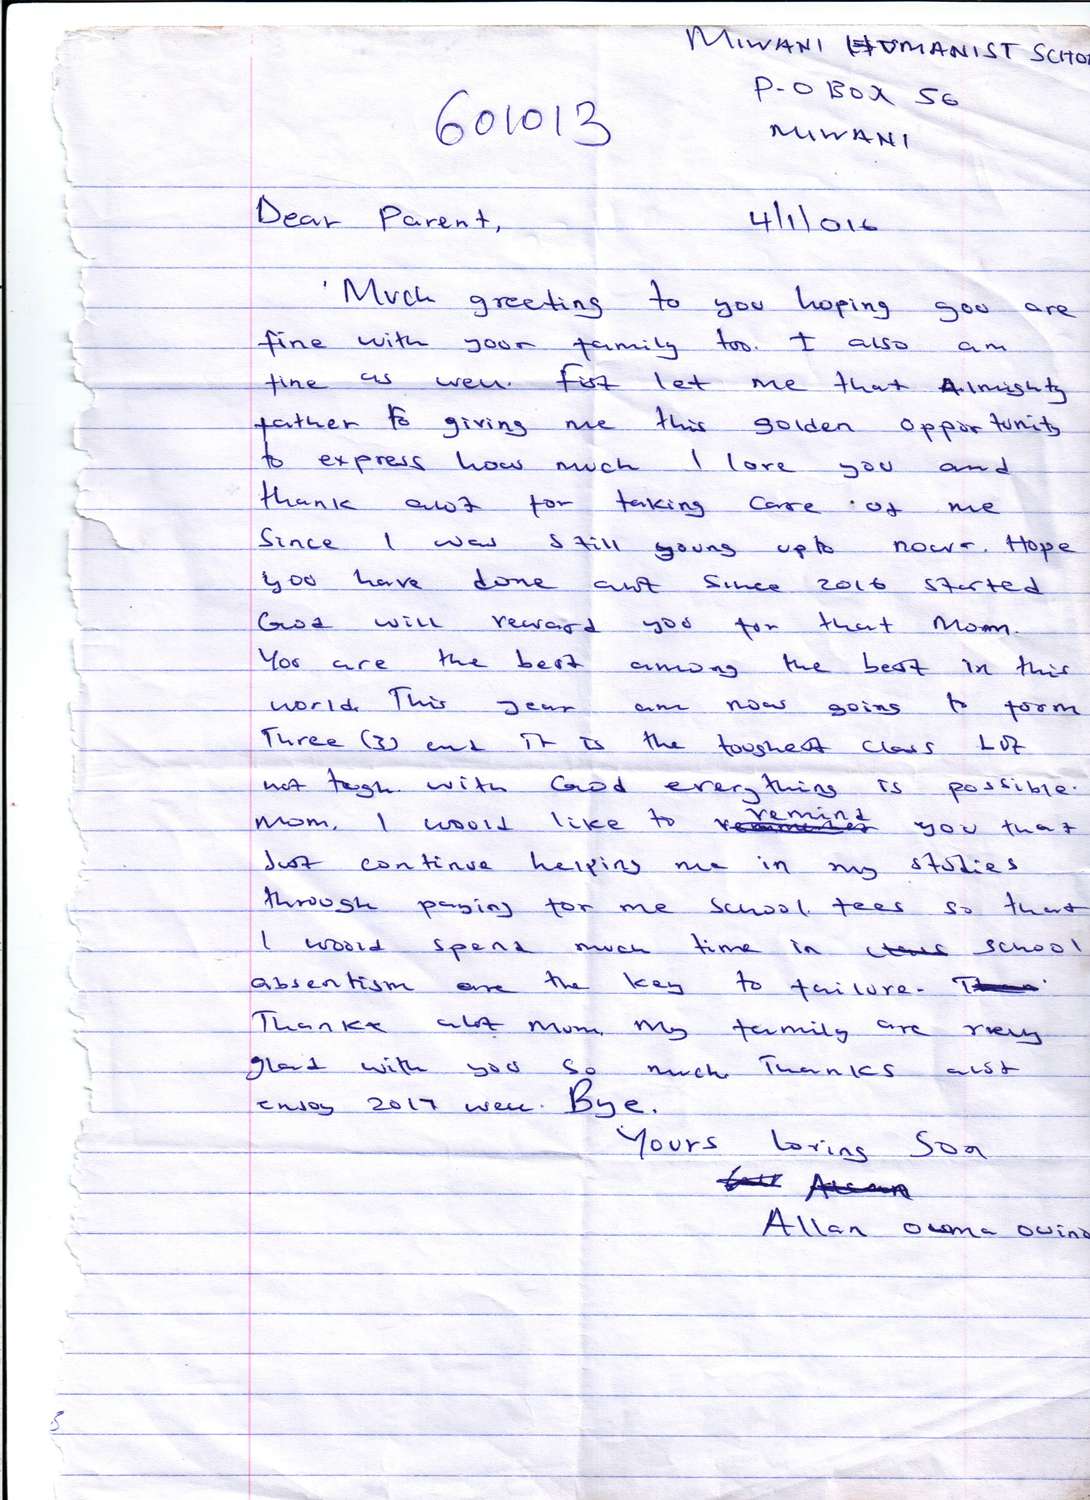 MIWANI HUMANIST SCHO
P.O BOX 56
601013
MIWANI
Dear Parent,
4/1/016
Much greeting to you hoping you are
fine with your family too. I also am
fine as well. Fist let me that Almighty
father to giving me this golden opportunity
to express how much I love you and
thank alot for taking care of me
Since I was still young upto now. Hope
you have done alot since 2016 started
God will reward you for that Mom.
You are the best among the best in this
world. This year am now going to form
Three (3) and it is the toughest class but
not togh. with God everything is possible.
Mom, I would like to remind you that
Just continue helping me in my studies
through paying for me school fees so that
I would spend much time in class school
absentism are the key to failure.
Thanks alot Mum. My family are very
glad with you so much. Thanks alot
enjoy 2017 well. Bye.
Yours loving Son
Allan
Allan ouma owino